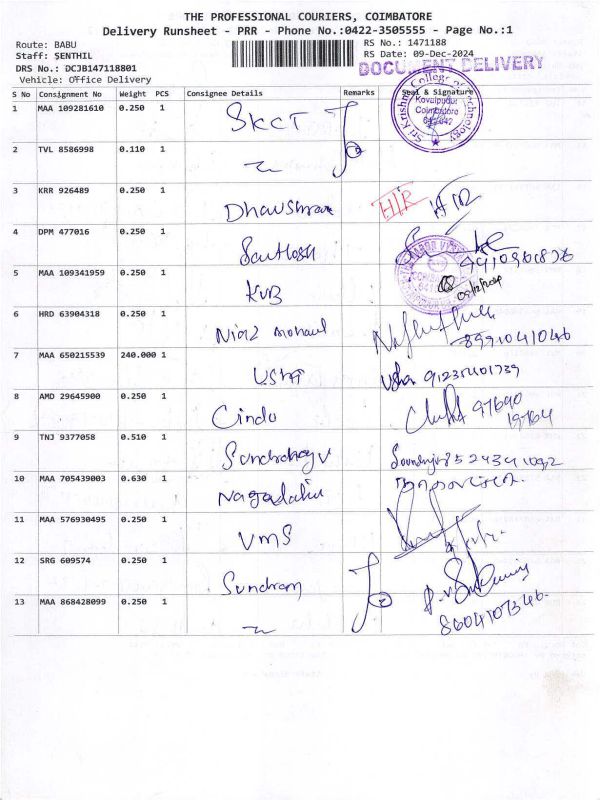 THE PROFESSIONAL COURIERS, COIMBATORE
Delivery Runsheet - PRR - Phone No.:0422-3505555 - Page No.:1
Route: BABU
Staff: SENTHIL
DRS No.: DCJB147118801
Vehicle: Office Delivery
RS No.: 1471188
RS Date: 09-Dec-2024
DOCUMENT DELIVERY
S No Consignment No Weight PCS Consignee Details Remarks Seal & Signature
1 MAA 109281610 0.250 1 SKCT
Sri Krishna College of Technology
Kovaipudur
Coimbatore
641042
2 TVL 8586998 0.110 1
3 KRR 926489 0.250 1 H/R
4 DPM 477016 0.250 1 Santhosh
5 MAA 109341959 0.250 1 KVB
09/12/2024
6 HRD 63904318 0.250 1
7 MAA 650215539 240.000 1 Usha Usha
8 AMD 29645900 0.250 1 Cindu
9 TNJ 9377058 0.510 1
10 MAA 705439003 0.630 1
11 MAA 576930495 0.250 1 VMS
12 SRG 609574 0.250 1 Sundram
13 MAA 868428099 0.250 1